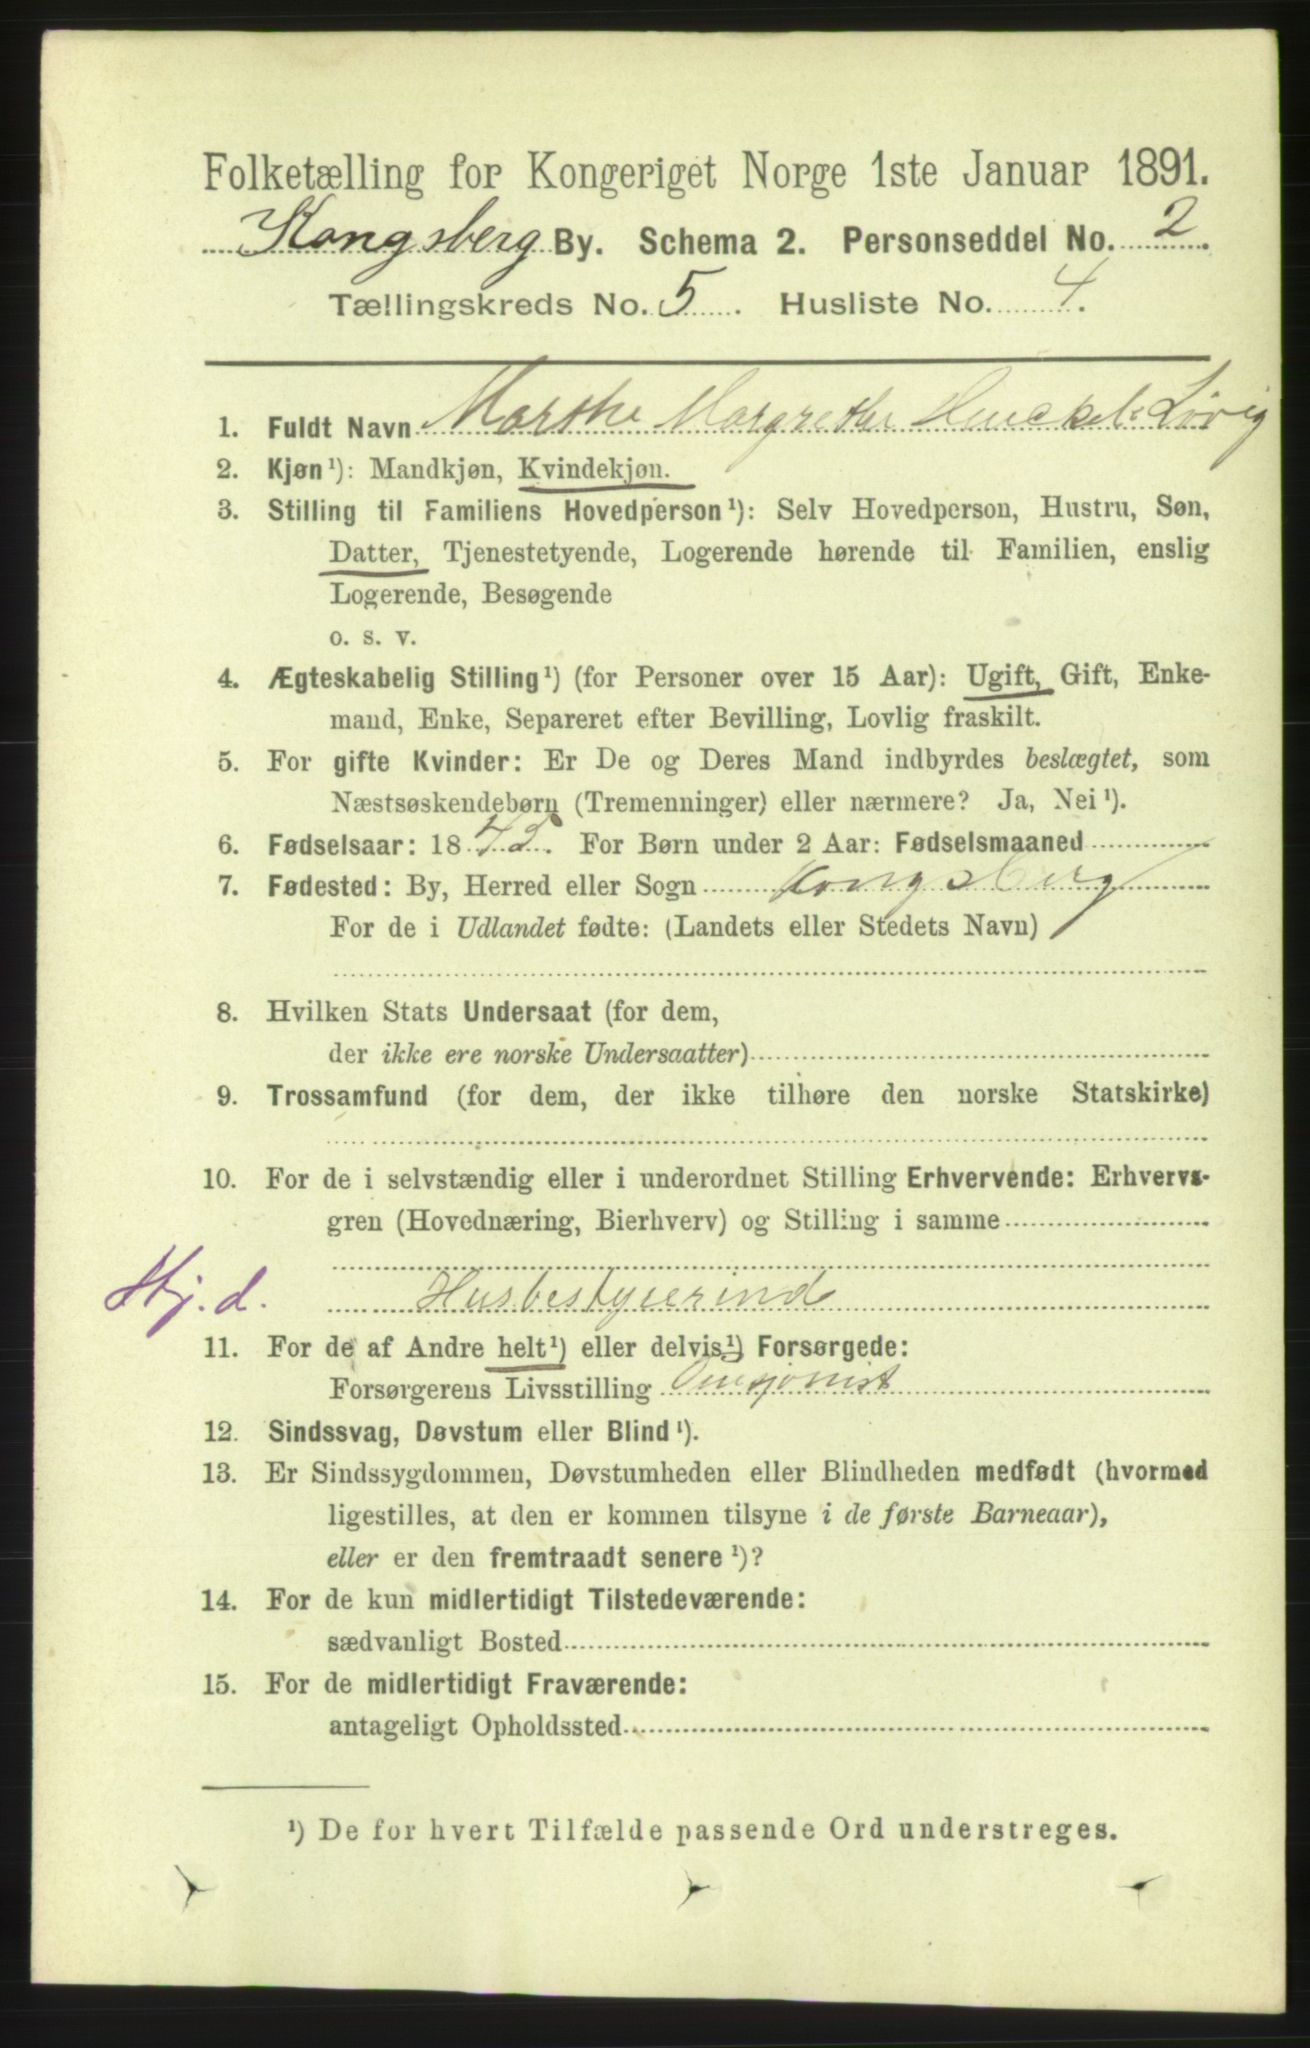 Folketælling for Kongeriget Norge 1ste Januar 1891.
Kongsberg By. Schema 2. Personseddel No. 2.
Tællingskreds No. 5. Husliste No. 4.
1. Fuldt Navn Marthe Margrethe Løvig
2. Kjøn¹): Mandkjøn, Kvindekjøn.
3. Stilling til Familiens Hovedperson¹): Selv Hovedperson, Hustru, Søn,
Datter, Tjenestetyende, Logerende hørende til Familien, enslig
Logerende, Besøgende
o. s. v.
4. Ægteskabelig Stilling¹) (for Personer over 15 Aar): Ugift, Gift, Enke-
mand, Enke, Separeret efter Bevilling, Lovlig fraskilt.
5. For gifte Kvinder: Er De og Deres Mand indbyrdes beslægtet, som
Næstsøskendebørn (Tremenninger) eller nærmere? Ja, Nei¹).
6. Fødselsaar: 1843. For Børn under 2 Aar: Fødselsmaaned
7. Fødested: By, Herred eller Sogn Kongsberg
For de i Udlandet fødte: (Landets eller Stedets Navn)
8. Hvilken Stats Undersaat (for dem,
der ikke ere norske Undersaatter)
9. Trossamfund (for dem, der ikke tilhøre den norske Statskirke)
10. For de i selvstændig eller i underordnet Stilling Erhvervende: Erhvervs-
gren (Hovednæring, Bierhverv) og Stilling i samme
Hj. d. Husbestyerinde
11. For de af Andre helt¹) eller delvis¹) Forsørgede:
Forsørgerens Livsstilling Pensjonist
12. Sindssvag, Døvstum eller Blind¹).
13. Er Sindssygdommen, Døvstumheden eller Blindheden medfødt (hvormed
ligestilles, at den er kommen tilsyne i de første Barneaar),
eller er den fremtraadt senere¹)?
14. For de kun midlertidigt Tilstedeværende:
sædvanligt Bosted
15. For de midlertidigt Fraværende:
antageligt Opholdssted
¹) De for hvert Tilfælde passende Ord understreges.